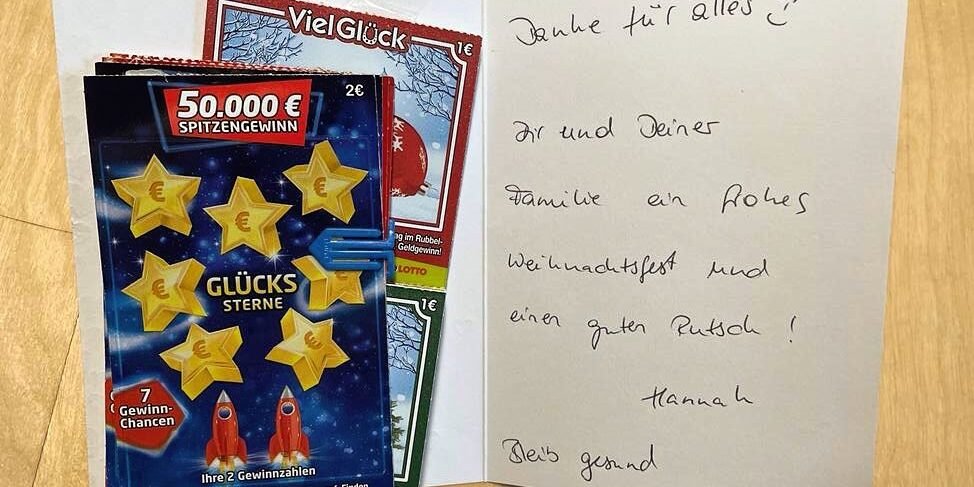 Viel Glück
1€
50.000 €
SPITZENGEWINN
2€
€
€
€
€
€
GLÜCKS
STERNE
€
€
ng im Rubbel-
Geldgewinn!
LOTTO
1€
7
Gewinn-
Chancen
Ihre 2 Gewinnzahlen
Danke für alles
Dir und Deiner
Familie ein frohes
Weihnachtsfest und
einen guten Rutsch !
Hannah
Bleib gesund